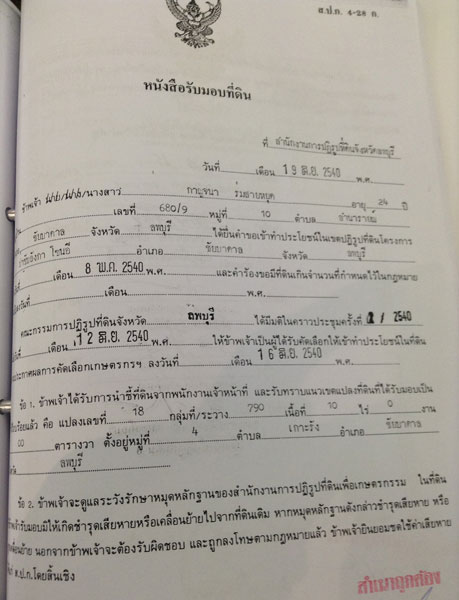 ส.ป.ก. 4-28 ก.
หนังสือรับมอบที่ดิน
ที่ สำนักงานการปฏิรูปที่ดินจังหวัดลพบุรี
วันที่ เดือน 19 มิ.ย. 2540 พ.ศ.
ข้าพเจ้า นาย/นาง/นางสาว กาญจนา ร่มสายหยุด อายุ 24 ปี
เลขที่ 680/9 หมู่ที่ 10 ตำบล ลำนารายณ์
ชัยบาดาล จังหวัด ลพบุรี ได้ยื่นคำขอเข้าทำประโยชน์ในเขตปฏิรูปที่ดินโครงการ
อำเภอ ชัยบาดาล จังหวัด ลพบุรี
เดือน 8 พ.ค. 2540 พ.ศ. และคำร้องขอมีที่ดินเกินจำนวนที่กำหนดไว้ในกฎหมาย
วันที่ เดือน พ.ศ.
คณะกรรมการปฏิรูปที่ดินจังหวัด ลพบุรี ได้มีมติในคราวประชุมครั้งที่ 2 / 2540
12 มิ.ย. 2540 พ.ศ. ให้ข้าพเจ้าเป็นผู้ได้รับคัดเลือกให้เข้าทำประโยชน์ในที่ดิน
ประกาศผลการคัดเลือกเกษตรกรฯ ลงวันที่ เดือน 16 มิ.ย. 2540
ข้อ 1. ข้าพเจ้าได้รับการนำชี้ที่ดินจากพนักงานเจ้าหน้าที่ และรับทราบแนวเขตแปลงที่ดินที่ได้รับมอบเป็น
เรียบร้อยแล้ว คือ แปลงเลขที่ 18 กลุ่มที่/ระวาง 790 เนื้อที่ 10 ไร่ 0 งาน
00 ตารางวา ตั้งอยู่หมู่ที่ 4 ตำบล เกาะรัง อำเภอ ชัยบาดาล
ลพบุรี
ข้อ 2. ข้าพเจ้าจะดูแลระวังรักษาหมุดหลักฐานของสำนักงานการปฏิรูปที่ดินเพื่อเกษตรกรรม ในที่ดิน
ข้าพเจ้ารับมอบมิให้เกิดชำรุดเสียหายหรือเคลื่อนย้ายไปจากที่ดินเดิม หากหมุดหลักฐานดังกล่าวชำรุดเสียหาย หรือ
เคลื่อนย้าย นอกจากข้าพเจ้าจะต้องรับผิดชอบ และถูกลงโทษตามกฎหมายแล้ว ข้าพเจ้ายินยอมชดใช้ค่าเสียหาย
ส.ป.ก.โดยสิ้นเชิง
สำเนาถูกต้อง